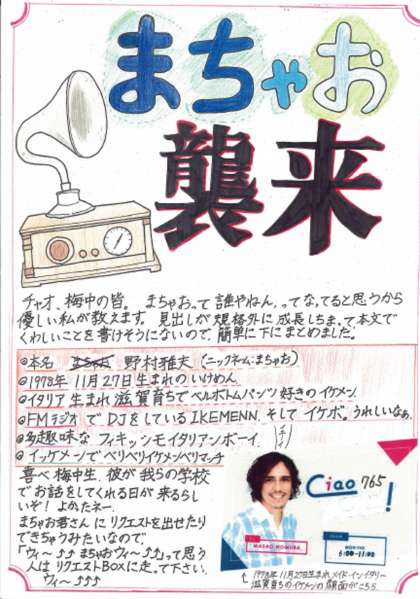 まちゃお
襲来
チャオ、梅中の皆。まちゃおって誰やねん、ってなってると思うから
優しい私が教えます。見出しが規格外に成長しちまって本文で
くわしいことを書けそうにないので、簡単に下にまとめました。
◎本名 野村雅夫(ニックネーム:まちゃお)
◎1978年 11月27日生まれのいけめん
◎イタリア生まれ滋賀育ちでベルボトムパンツ好きのイケメン
◎FMラジオでDJをしているIKEMENN、そしてイケボ。うれしいなぁ。
◎多趣味なフィキンモイタリアンボーイ
◎イッケメンでベリベリイケメンベリマッチ
喜べ梅中生、彼が我らの学校
でお話をしてくれる日が来るらし
いぞ!よかたネー。
まちゃお君さんにリクエストを出せたり
できちゃうみたいなので、
「ウィ〜♪♪まちゃおウィ〜♪♪」って思う
人はリクエストBOXに走って下さい。
ウィ〜♪♪♪
Ciao 765
!
MASAO NOMURA
6:00-11:00
↑1978年11月27日生まれメイド・イン・イタリー
滋賀育ちのイケメンの顔面がこちら